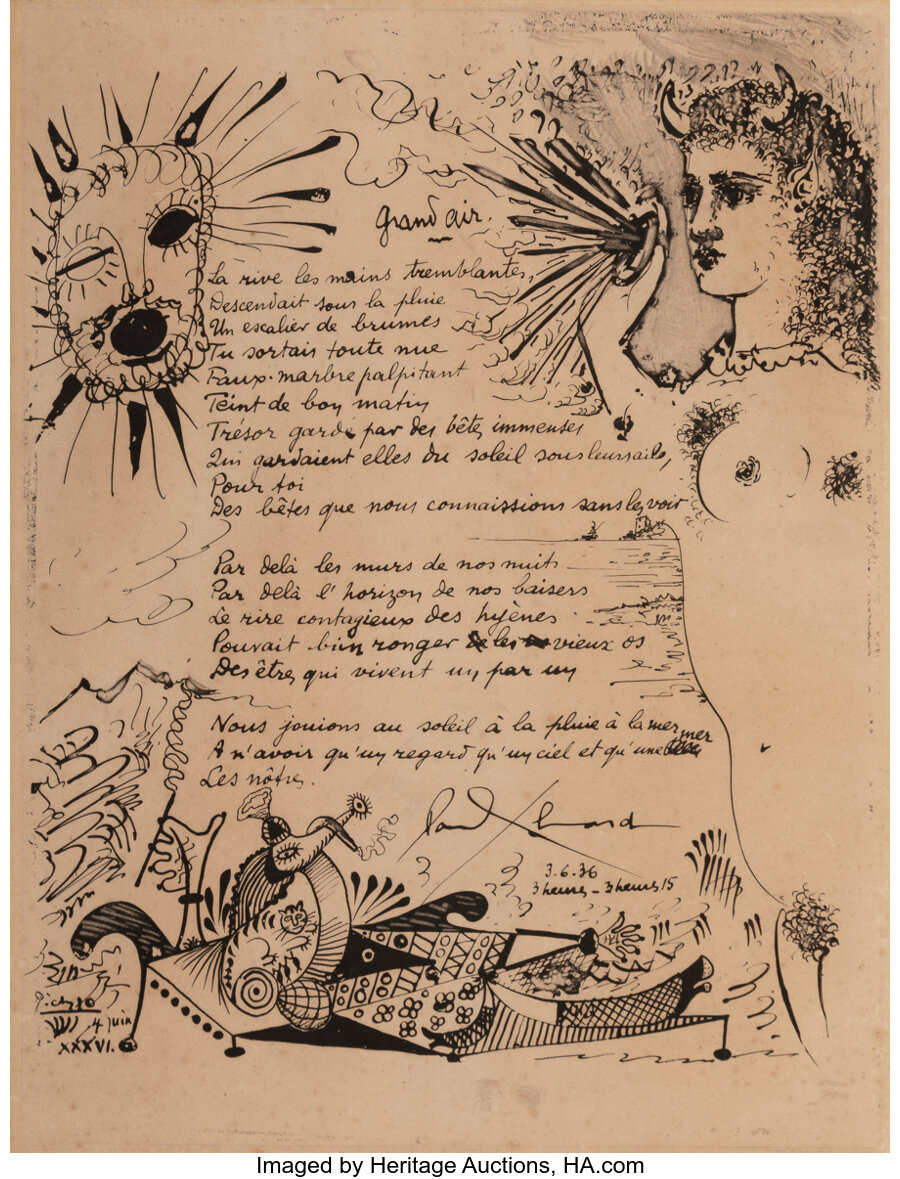 Grand air.
La rive les mains tremblantes,
Descendait sous la pluie
Un escalier de brumes
Tu sortais toute nue
Faux marbre palpitant
Teint de bon matin
Trésor gardé par des bêtes immenses
Qui gardaient elles du soleil sous leurs ailes,
Pour toi
Des bêtes que nous connaissions sans les voir
Par delà les murs de nos nuits
Par delà l'horizon de nos baisers
Le rire contagieux des hyènes
Pouvait bien ronger les vieux os
Des êtres qui vivent un par un
Nous jouions au soleil à la pluie à la mer
A n'avoir qu'un regard qu'un ciel et qu'une mer
Les nôtres.
Paul Eluard
3.6.36
3 heures - 3 heures 15
Picasso
4 juin
XXXVI.
Imaged by Heritage Auctions, HA.com